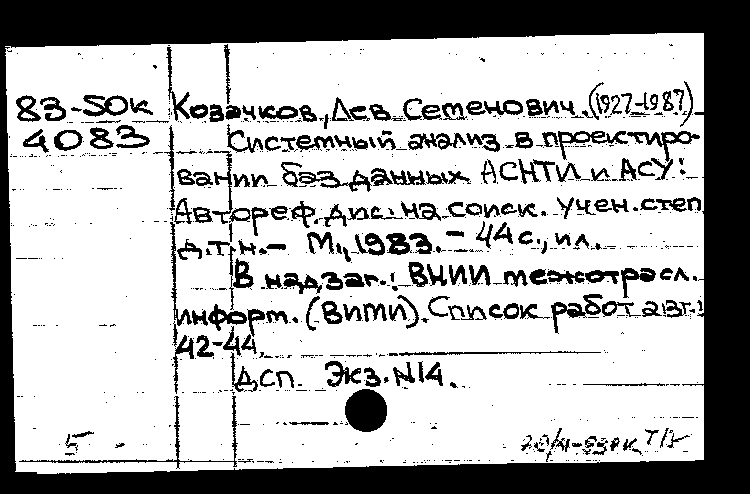 83-5ок Козачков, Лев Семенович. (1927-1987)
4083 Системный анализ в проектиро-
вании баз данных АСНТИ и АСУ:
Автореф. дис. на соиск. учен. степ.
д.т.н.– М., 1983. – 44 с., ил.
В надзаг.: ВНИИ межотрасл.
информ. (ВИМИ). Список работ авт.:
42-44.
ДСП. Экз. N14.
5